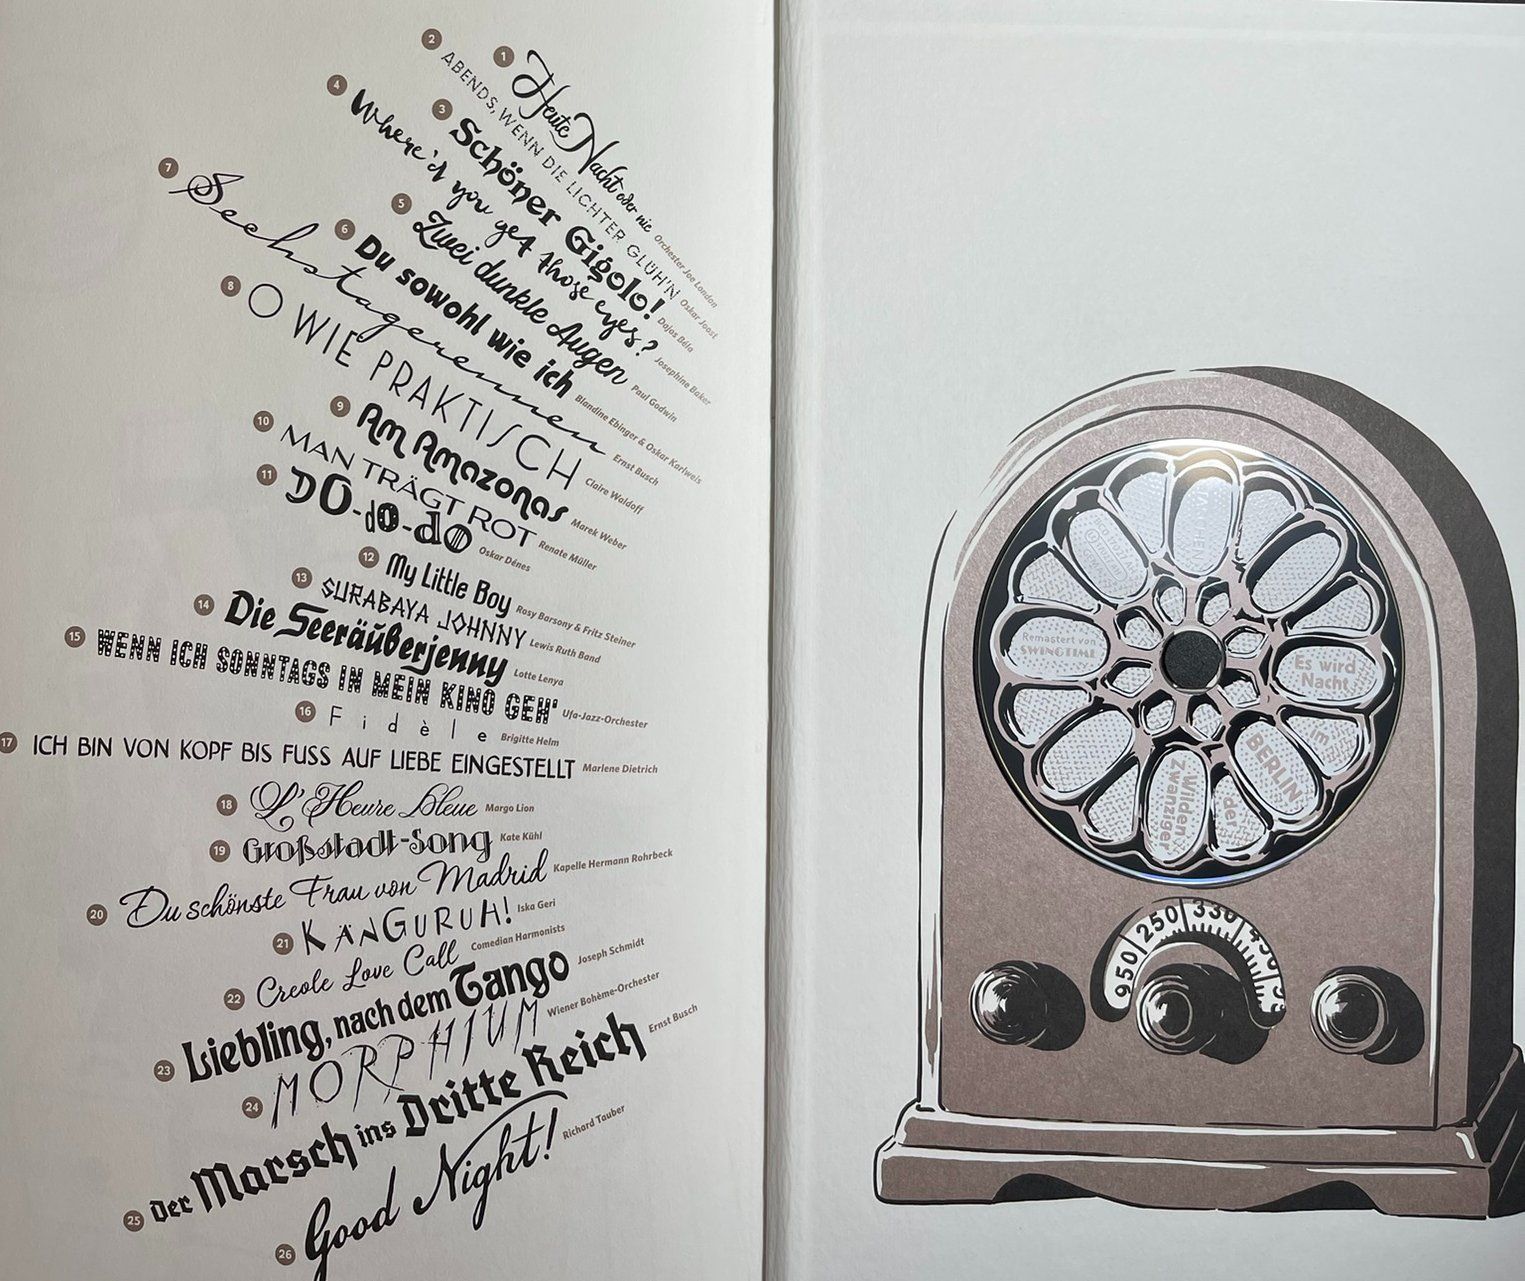 1 Heute Nacht oder nie Orchester Joe London
2 ABENDS, WENN DIE LICHTER GLÜH'N Oskar Joost
3 Schöner Gigolo! Dajos Béla
4 Where'd you get those eyes? Josephine Baker
5 Zwei dunkle Augen Paul Godwin
6 Du sowohl wie ich Blandine Ebinger & Oskar Karlweis
7 Sechstagerennen Ernst Busch
8 O WIE PRAKTISCH Claire Waldoff
9 Am Amazonas Marek Weber
10 MAN TRÄGT ROT Renate Müller
11 DO-do-do Oskar Dénes
12 My Little Boy Rosy Barsony & Fritz Steiner
13 SURABAYA JOHNNY Lewis Ruth Band
14 Die Seeräuberjenny Lotte Lenya
15 WENN ICH SONNTAGS IN MEIN KINO GEH' Ufa-Jazz-Orchester
16 Fidèle Brigitte Helm
17 ICH BIN VON KOPF BIS FUSS AUF LIEBE EINGESTELLT Marlene Dietrich
18 L'Heure bleue Margo Lion
19 Großstadt-Song Kate Kühl
20 Du schönste Frau von Madrid Kapelle Hermann Rohrbeck
21 KÄNGURUH! Iska Geri
22 Creole Love Call Comedian Harmonists
23 Liebling, nach dem Tango Joseph Schmidt
24 MORPHIUM Wiener Bohème-Orchester
25 Der Marsch ins Dritte Reich Ernst Busch
26 Good Night! Richard Tauber
Remastert von
SWINGTIME
Es wird
Nacht
im
BERLIN
der
Wilden
Zwanziger
950 250 330 450